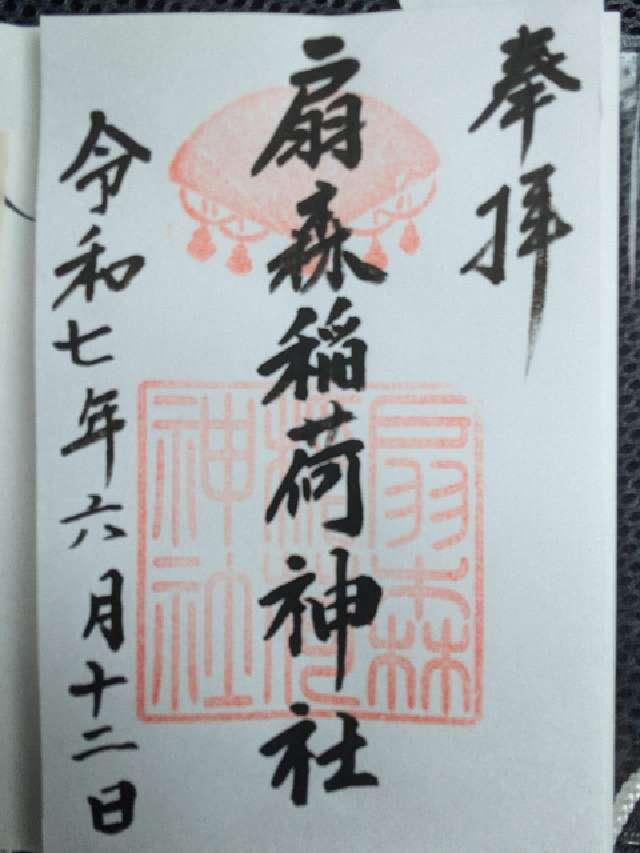 奉拝
扇森稲荷神社
令和七年六月十二日
扇森
稲荷
神社